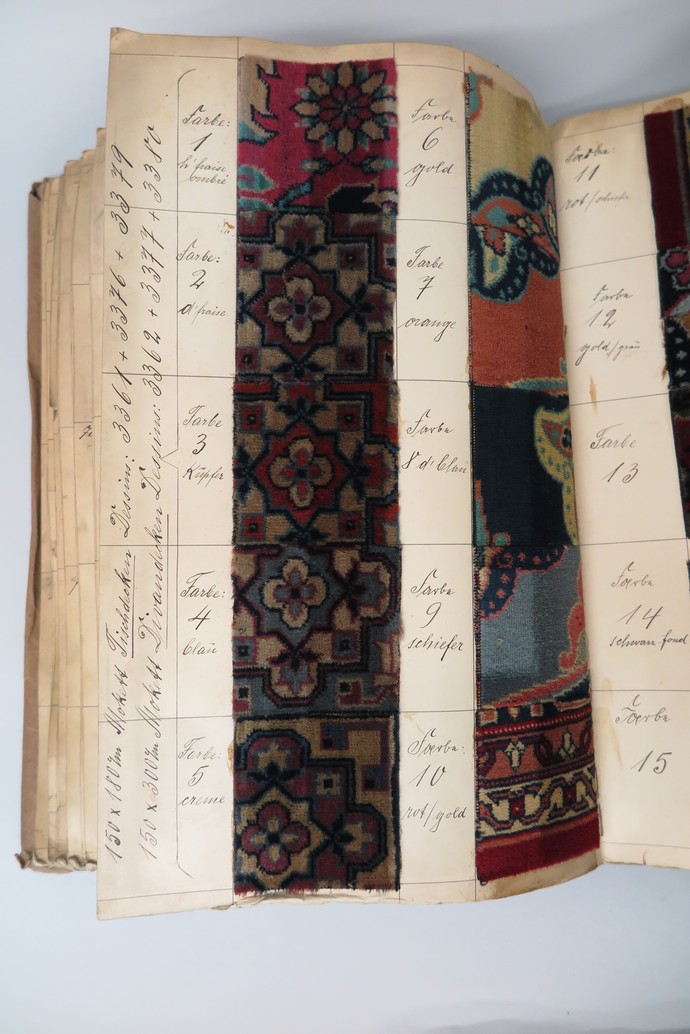 150 x 180/m Mokett Tischdecken Dessins: 3361 + 3376 + 3379
150 x 300/m Mokett Divandecken Dessins: 3362 + 3377 + 3380
Farbe:
1
h'fraise
ombré
Farbe:
2
d'fraise
Farbe
3
Kupfer
Farbe:
4
blau
Farbe:
5
creme
Farbe
6
gold
Farbe
7
orange
Farbe
8 d'blau
Farbe
9
schiefer
Farbe:
10
rot/gold
Farbe
11
rot/
Farbe
12
gold/grün
Farbe
13
Farbe
14
schwarz fond
Farbe
15